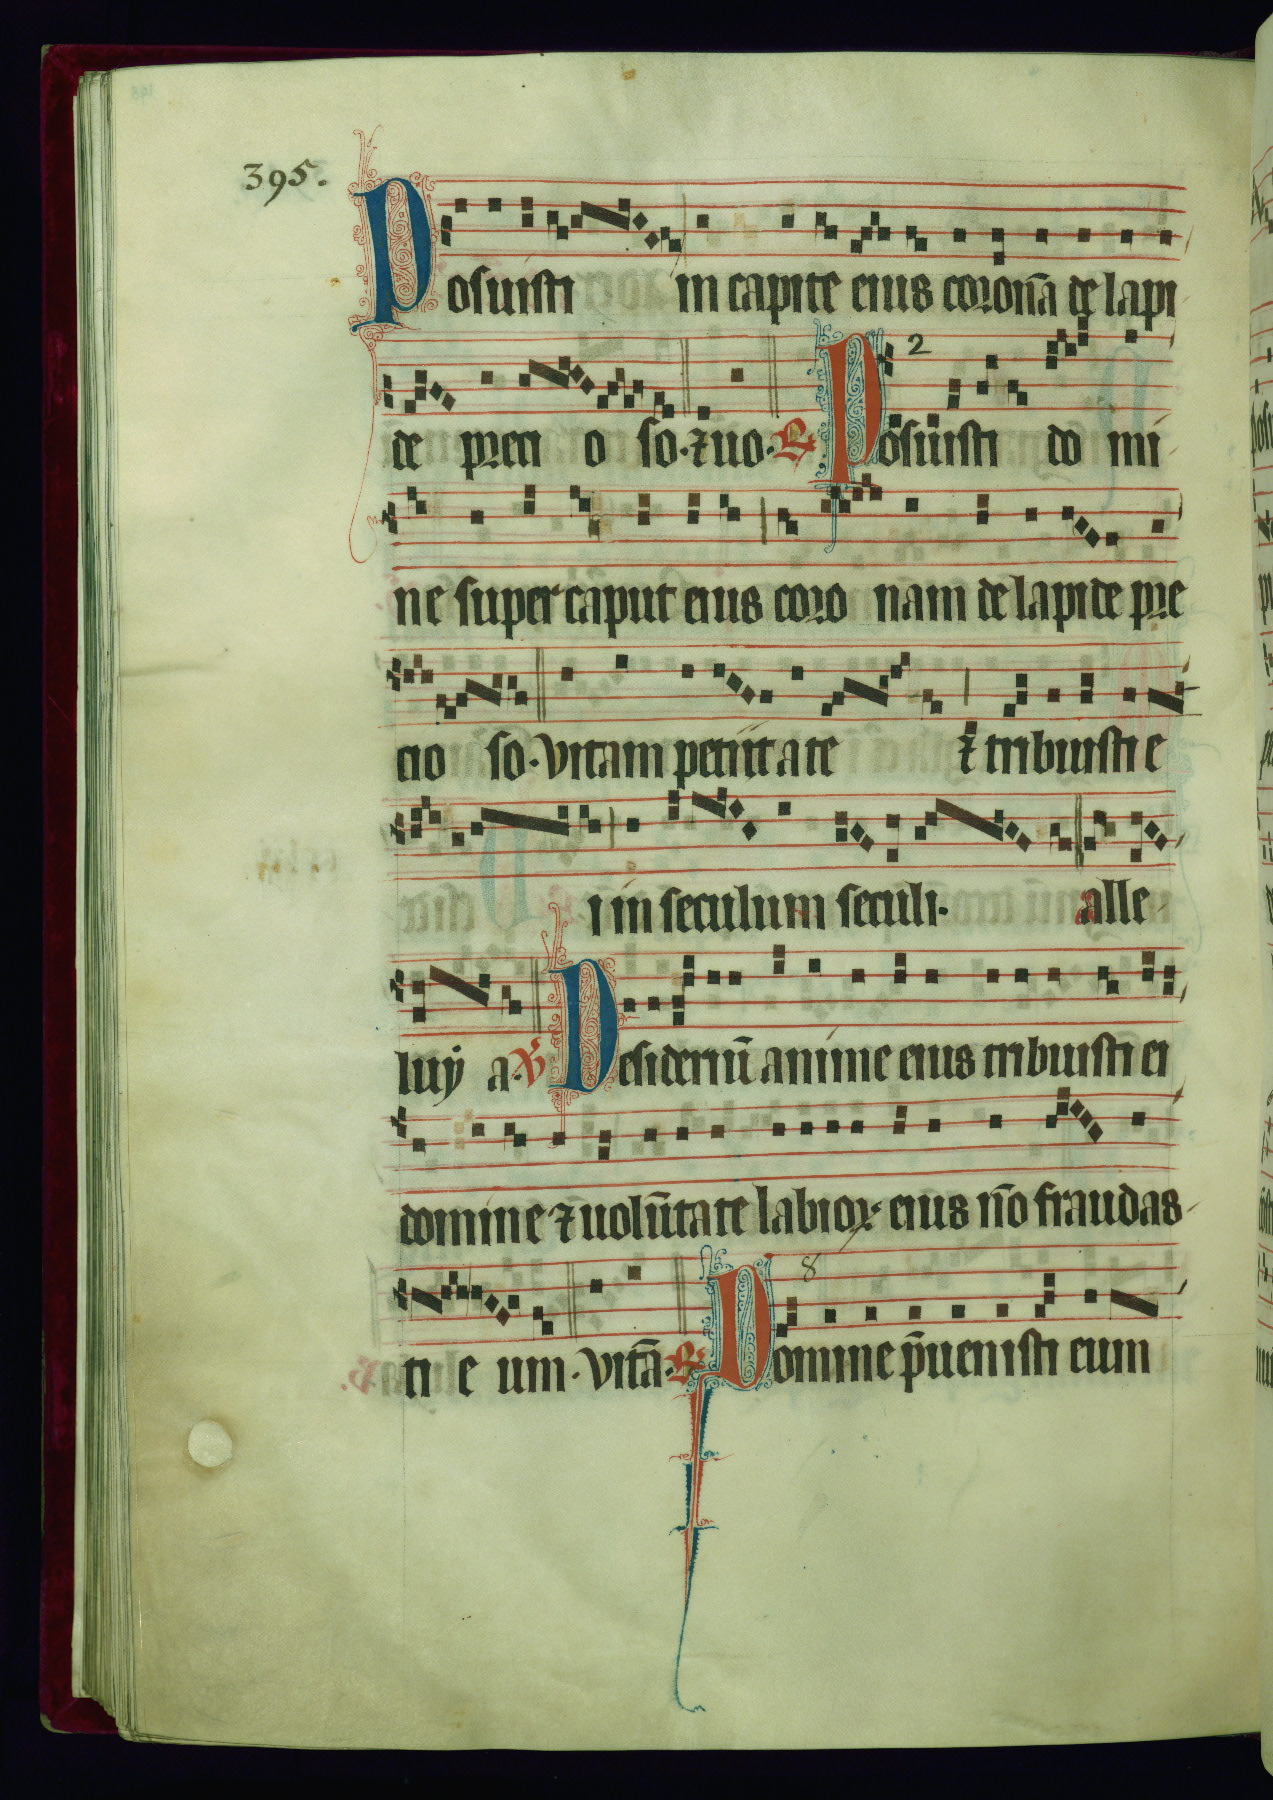 395.
Posuisti in capite eius coronā de lapi
de preci o so· ⁊uo· ℟ 2 Posuisti do mi
ne super caput eius coro nam de lapide pre
cio so· vitam petiit a te ⁊ tribuisti e
i in seculum seculi· alle
luy a· ℣ Desideriū anime eius tribuisti ei
domine ⁊ uolūtate labioꝝ eius nō fraudas
ti e um· vitā· ℟ 8 Domine p̄uenisti eum